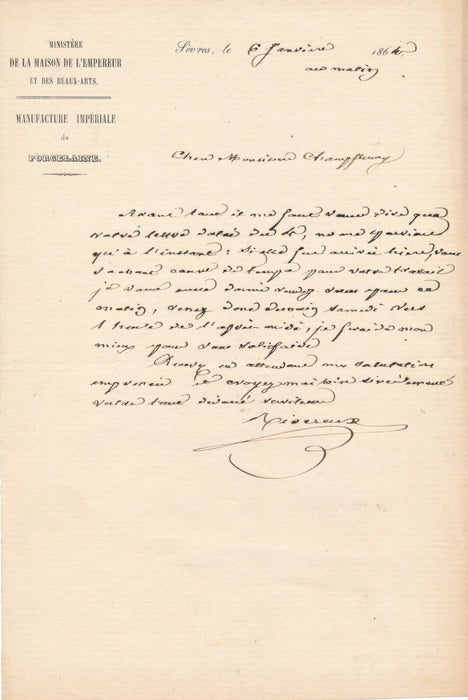 MINISTÈRE
DE LA MAISON DE L'EMPEREUR
ET DES BEAUX-ARTS.
MANUFACTURE IMPÉRIALE
de
PORCELAINE.
Sèvres, le 6 Janvier 1864
au matin
Cher Monsieur Champfleury
Avant tout il me faut vous dire que
votre lettre datée du 4, ne me parvient
qu'à l'instant : Si elle fut arrivée hier, vous
sachant court de temps pour votre travail
je vous eusse donné rendez vous pour ce
matin, venez donc demain Samedi vers
1 heure de l'après midi, je ferai de mon
mieux pour vous satisfaire
Recevez en attendant mes salutations
empressées et croyez moi bien sincèrement
votre tout dévoué serviteur
Riocreux